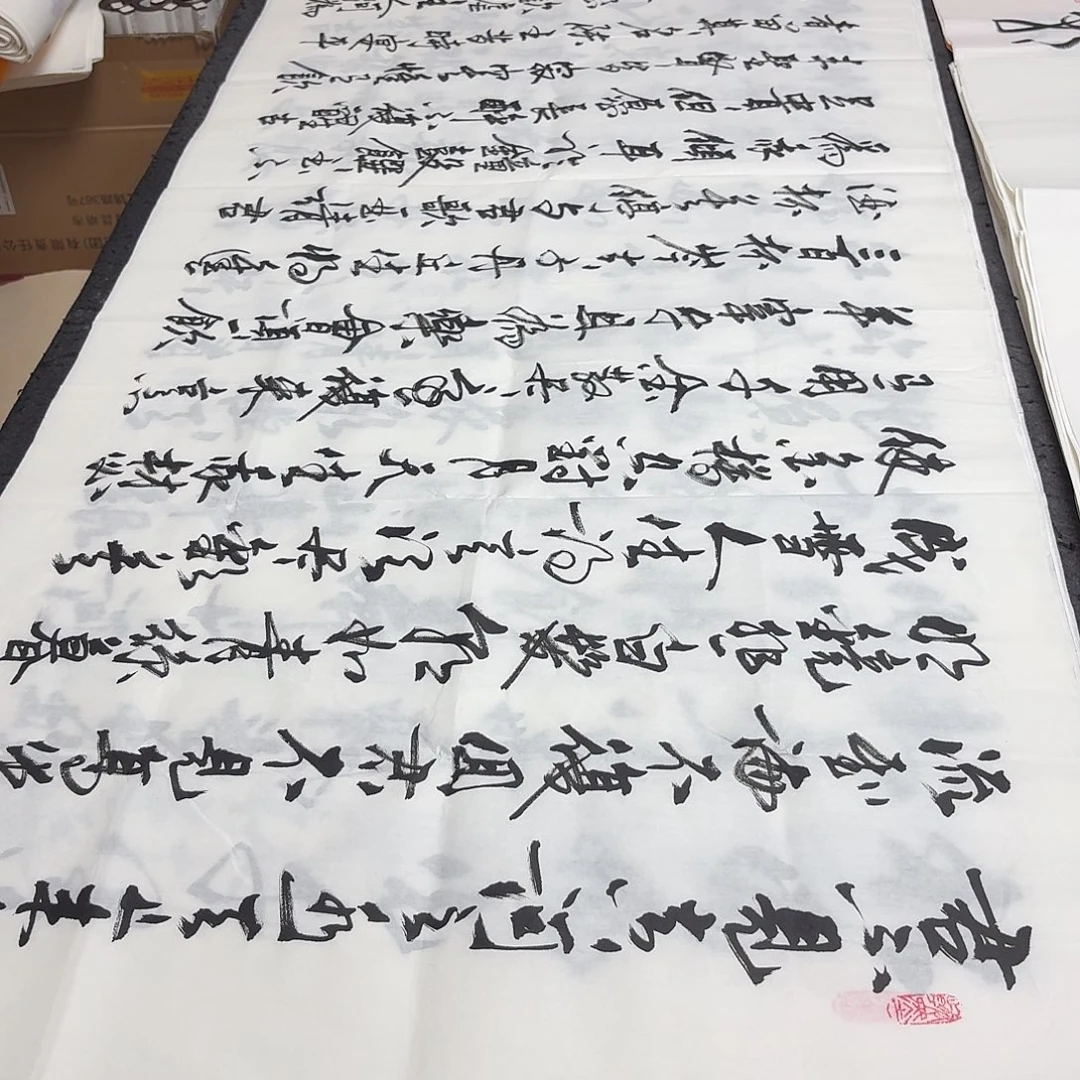 君不見黄河之水天上来
流到海不復回君不見高堂
明鏡悲白髮朝如青絲暮
成雪人生得意須盡歡莫
使金樽空對月天生我材必
有用千金散盡還復來烹
羊宰牛且為樂會須一飲
三百杯岑夫子丹丘生將進
酒杯莫停與君歌一曲請君
為我傾耳聽鐘鼓饌玉不
足貴但願長醉不復醒古
來聖賢皆寂寞惟有飲
者留其名陳王昔時宴平
有限责任公
路367号